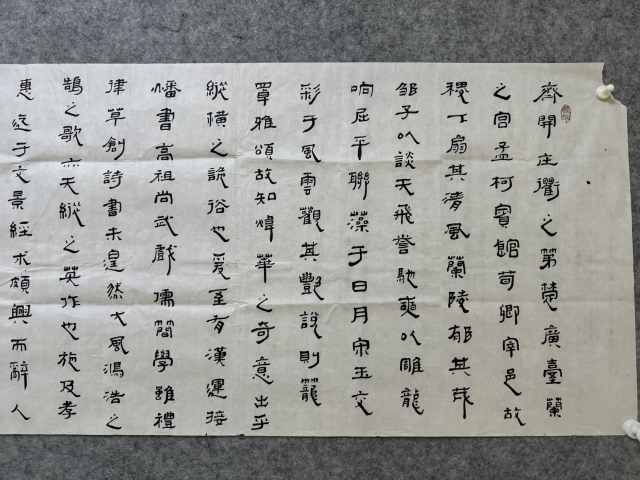 齊開庄衢之第楚廣臺蘭
之宮孟柯賓館荀卿宰邑故
稷下扇其清風蘭陵郁其茂
邹子以談天飛誉馳奭以雕龍
响屈平聯藻于日月宋玉交
彩于風雲觀其艷說則籠
罩雅頌故知煒華之奇意出乎
縱橫之詭俗也爰至有漢運接
幡書高祖尚武戲儒簡學雖禮
律草創詩書未遑然大風鴻浩之
鵠之歌亦天縱之英作也施及孝
惠迄于文景經术頗興而辭人